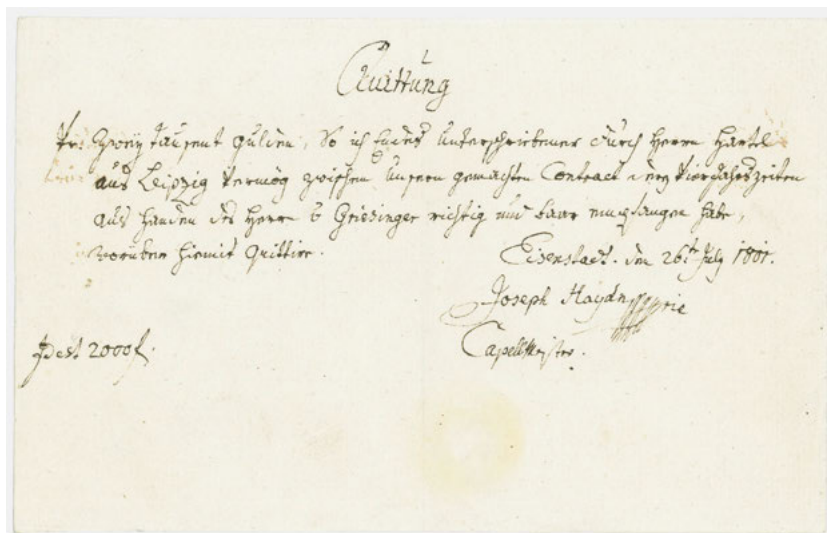 Quittung
Pr. Zweÿ tausent gulden, So ich Endes Unterschriebener durch Herrn Härtel
aus Leipzig vermög zwischen Unsern gemachten Contract deren Vier Jahrszeiten
aus Handen des Herrn v Griesinger richtig und baar empfangen habe,
worüber hiemit quittire.
Eisenstadt. den 26ten July 1801.
Joseph Haydn mpria
Capellmeister.
Id est 2000 f.